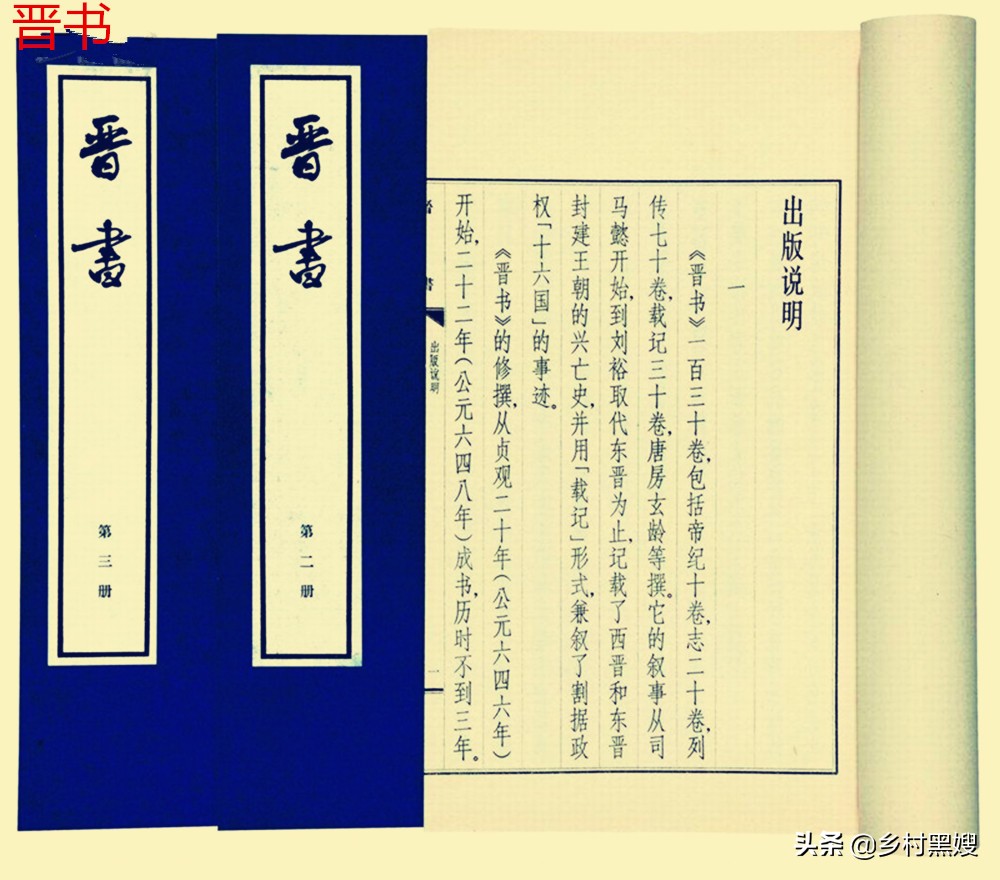 晋书
出版说明
一
《晋书》一百三十卷,包括帝纪十卷,志二十卷,列
传七十卷,载记三十卷,唐房玄龄等撰。它的叙事从司
马懿开始,到刘裕取代东晋为止,记载了西晋和东晋
封建王朝的兴亡史,并用「载记」形式,兼叙了割据政
权「十六国」的事迹。
《晋书》的修撰,从贞观二十年(公元六四六年)
开始,二十二年(公元六四八年)成书,历时不到三年。
出版说明
一
晋書
第二册
晋書
第三册
头条 @乡村黑嫂